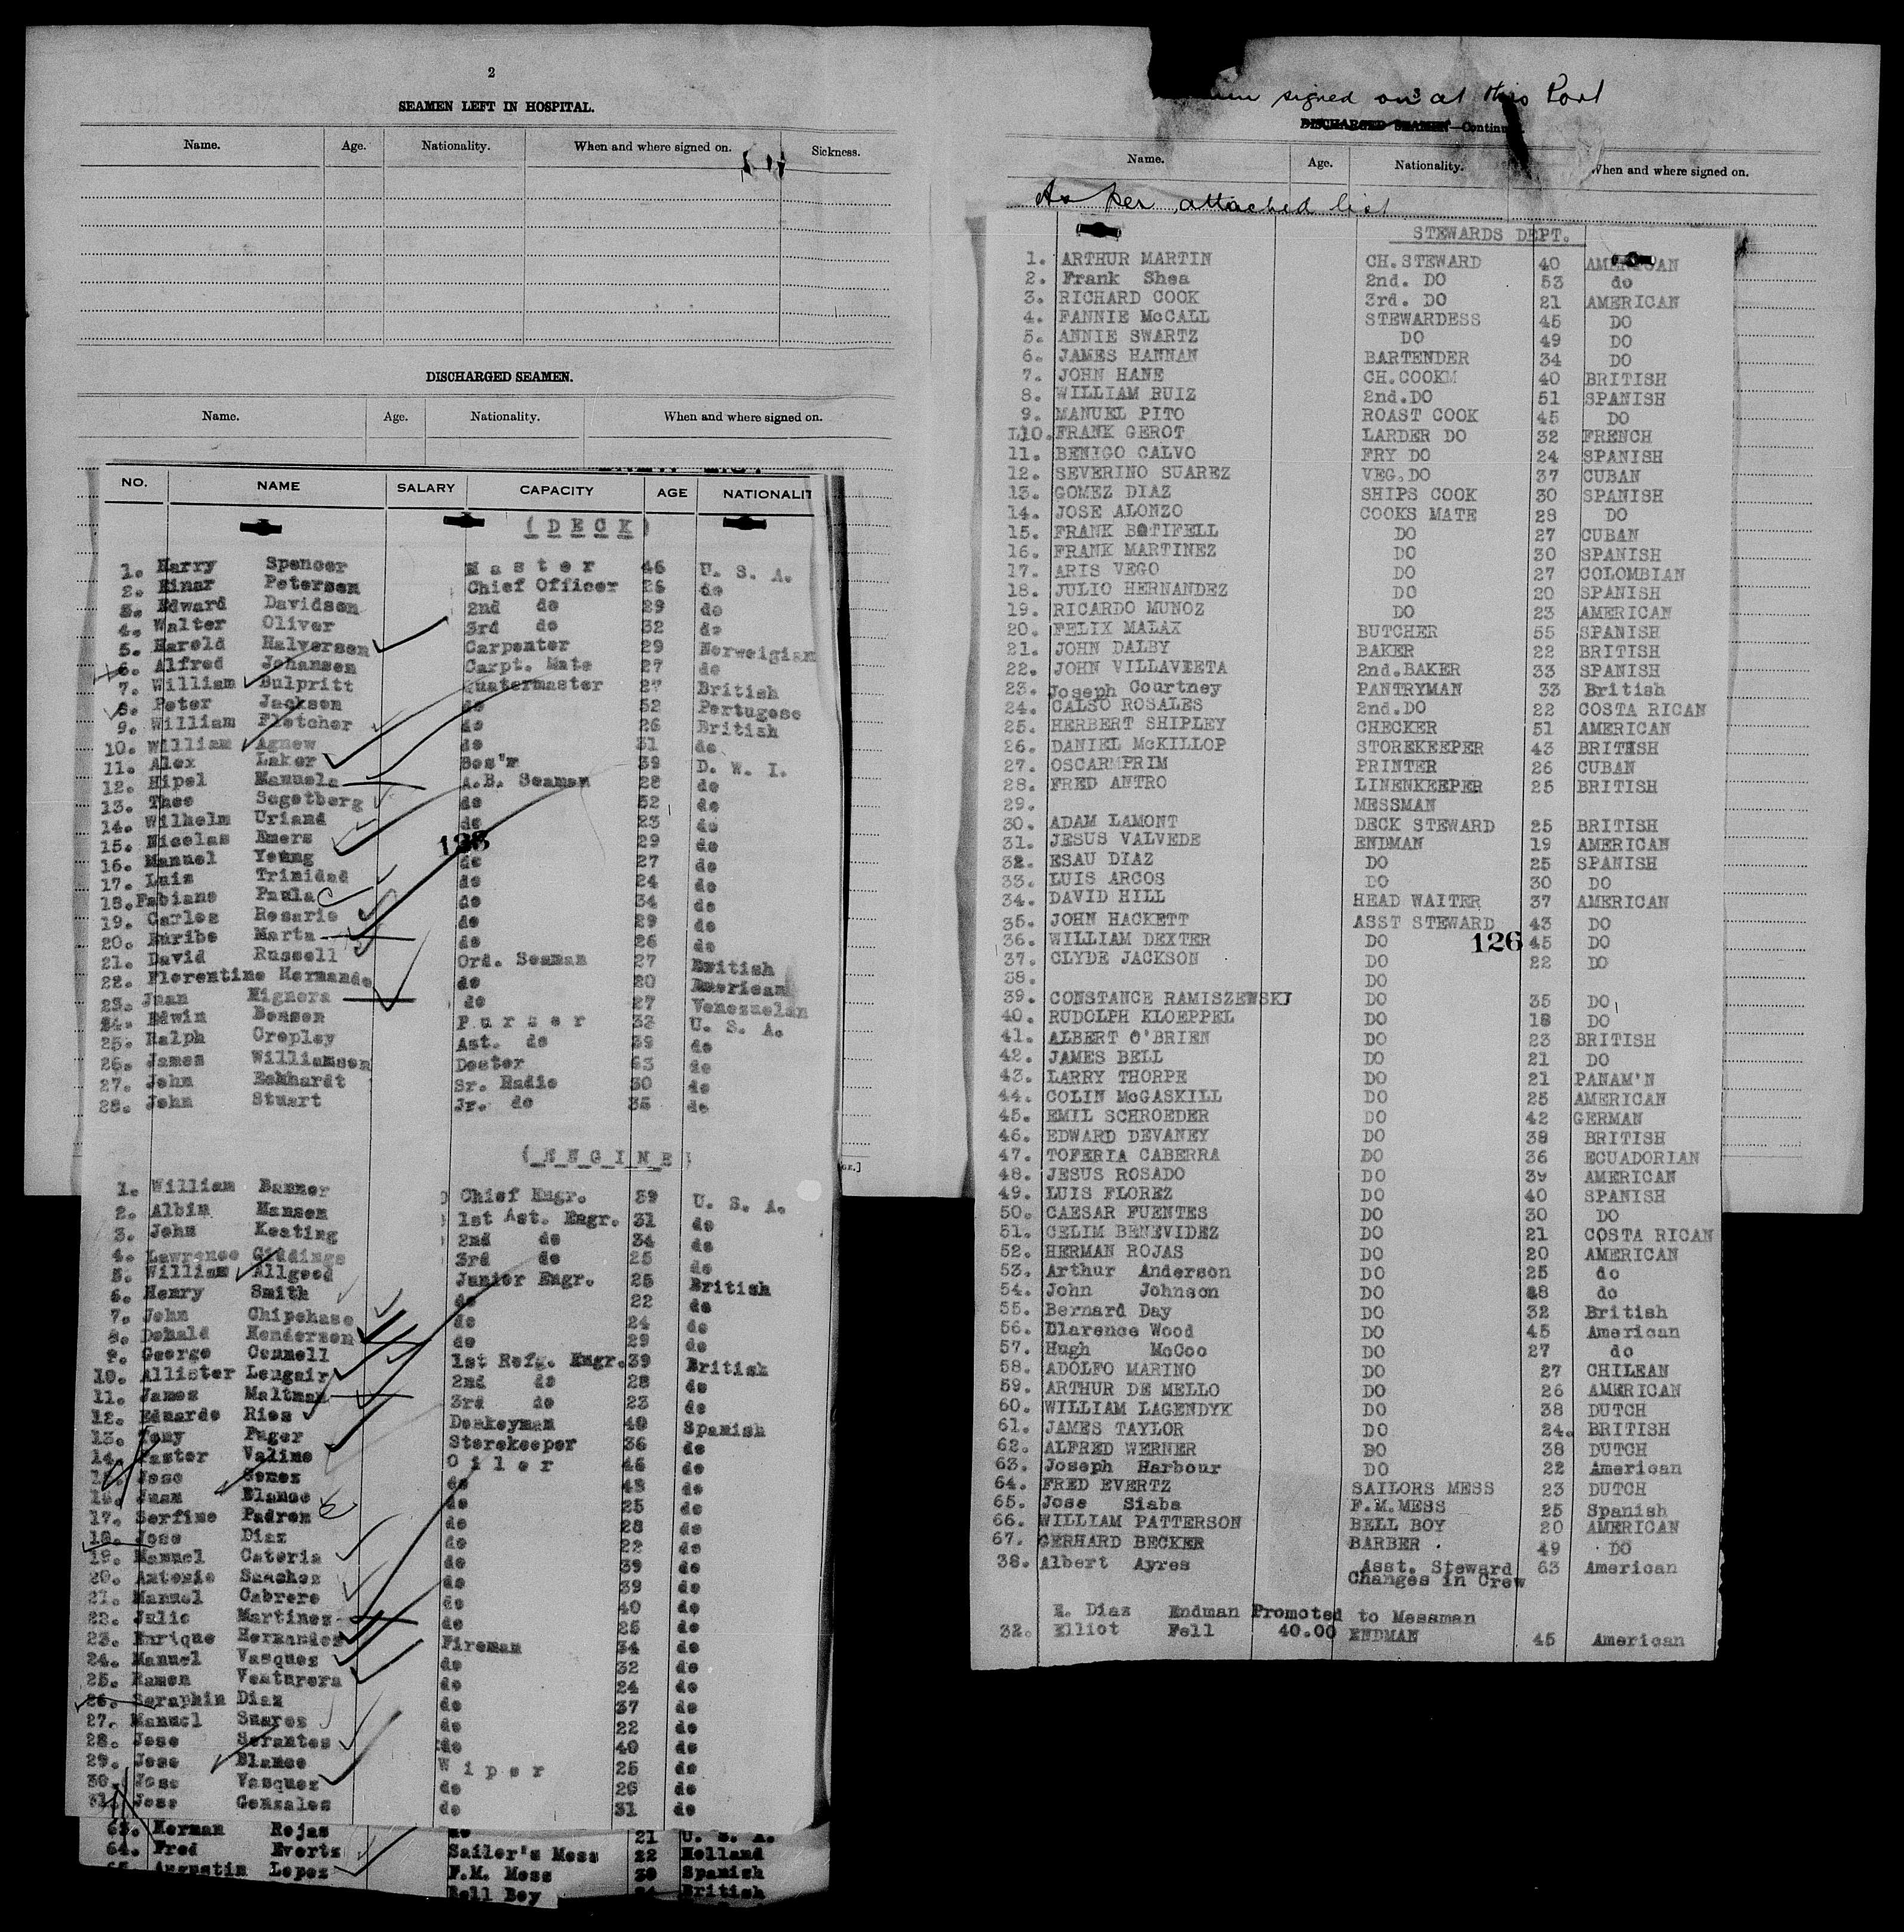 2
SEAMEN LEFT IN HOSPITAL.
Name. Age. Nationality. When and where signed on. Sickness.
DISCHARGED SEAMEN.
Name. Age. Nationality. When and where signed on.
NO. NAME SALARY CAPACITY AGE NATIONALIT
(DECK)
1. Harry Spencer Master 46 U. S. A.
2. Einar Petersen Chief Officer 26 do
3. Edward Davidson 2nd do 29 do
4. Walter Oliver 3rd do 32 do
5. Harold Halversen Carpenter 29 Norweigian
6. Alfred Johansen Carpt. Mate 27 do
7. William Bulpritt Quatermaster 27 British
8. Peter Jackson do 52 Portugese
9. William Fletcher do 26 British
10. William Agnew do 31 do
11. Alex Laker Bos'n 39 D. W. I.
12. Hipel Manuela A.B. Seaman 28 do
13. Theo Segetberg do 52 do
14. Wilhelm Uriand do 23 do
15. Nicolas Emers do 29 do
16. Manuel Young do 27 do
17. Luis Trinidad do 24 do
18. Fabiano Paula do 34 do
19. Carlos Rosario do 29 do
20. Euribe Marta do 26 do
21. David Russell Ord. Seaman 27 British
22. Florentine Hernande do 20 American
23. Juan Mignora do 27 Venezuelan
24. Edwin Benson Purser 33 U. S. A.
25. Ralph Cropley Ast. do 39 do
26. James Williamson Doctor 63 do
27. John Eckhardt Sr. Radio 30 do
28. John Stuart Jr. do 35 do
(ENGINE)
1. William Banner Chief Engr. 39 U. S. A.
2. Albin Hansen 1st Ast. Engr. 31 do
3. John Keating 2nd do 34 do
4. Lawrence Giddings 3rd do 25 do
5. William Allgood Junior Engr. 25 British
6. Henry Smith do 22 do
7. John Chipchase do 24 do
8. Donald Henderson do 29 do
9. George Connell 1st Refg. Engr. 39 British
10. Allister Lengair 2nd do 28 do
11. James Maltman 3rd do 23 do
12. Eduardo Rios Donkeyman 40 Spanish
13. Tony Puger Storekeeper 36 do
14. Paster Valino Oiler 46 do
15. Jose Senez do 48 do
16. Juan Blanco do 25 do
17. Serfino Padron do 28 do
18. Jose Diaz do 22 do
19. Manuel Cateria do 39 do
20. Antonio Sanchez do 39 do
21. Manuel Cabrero do 40 do
22. Julio Martinez do 25 do
23. Enrique Hernandez Fireman 34 do
24. Manuel Vasquez do 32 do
25. Ramon Venturera do 24 do
26. Seraphin Diaz do 37 do
27. Manuel Suarez do 22 do
28. Jose Serantes do 40 do
29. Jose Blanco Wiper 25 do
30. Jose Vasquez do 26 do
31. Jose Gonzales do 31 do
63. Herman Rojas do 21 U. S. A.
64. Fred Evertz Sailer's Mess 22 Holland
65. Augustin Lopez F.M. Mess 30 Spanish
Bell Boy British
signed on at this Port
3
DISCHARGED SEAMEN—Continu
Name. Age. Nationality. When and where signed on.
As per attached list
STEWARDS DEPT.
1. ARTHUR MARTIN CH.STEWARD 40 AMERICAN
2. Frank Shea 2nd. DO 53 do
3. RICHARD COOK 3rd. DO 21 AMERICAN
4. FANNIE McCALL STEWARDESS 45 DO
5. ANNIE SWARTZ DO 49 DO
6. JAMES HANNAN BARTENDER 34 DO
7. JOHN HANE CH.COOKM 40 BRITISH
8. WILLIAM RUIZ 2nd.DO 51 SPANISH
9. MANUEL PITO ROAST COOK 45 DO
10. FRANK GEROT LARDER DO 32 FRENCH
11. BENIGO CALVO FRY DO 24 SPANISH
12. SEVERINO SUAREZ VEG.DO 37 CUBAN
13. GOMEZ DIAZ SHIPS COOK 30 SPANISH
14. JOSE ALONZO COOKS MATE 28 DO
15. FRANK BOTIFELL DO 27 CUBAN
16. FRANK MARTINEZ DO 30 SPANISH
17. ARIS VEGO DO 27 COLOMBIAN
18. JULIO HERNANDEZ DO 20 SPANISH
19. RICARDO MUNOZ DO 23 AMERICAN
20. FELIX MALAX BUTCHER 55 SPANISH
21. JOHN DALBY BAKER 22 BRITISH
22. JOHN VILLAVIETA 2nd.BAKER 33 SPANISH
23. Joseph Courtney PANTRYMAN 33 British
24. CALSO ROSALES 2nd.DO 22 COSTA RICAN
25. HERBERT SHIPLEY CHECKER 51 AMERICAN
26. DANIEL McKILLOP STOREKEEPER 43 BRITISH
27. OSCARMPRIM PRINTER 26 CUBAN
28. FRED ANTRO LINENKEEPER 25 BRITISH
29. MESSMAN
30. ADAM LAMONT DECK STEWARD 25 BRITISH
31. JESUS VALVEDE ENDMAN 19 AMERICAN
32. ESAU DIAZ DO 25 SPANISH
33. LUIS ARCOS DO 30 DO
34. DAVID HILL HEAD WAITER 37 AMERICAN
35. JOHN HACKETT ASST STEWARD 43 DO
36. WILLIAM DEXTER DO 126 45 DO
37. CLYDE JACKSON DO 22 DO
38. DO
39. CONSTANCE RAMISZEWSKI DO 35 DO
40. RUDOLPH KLOEPPEL DO 18 DO
41. ALBERT O'BRIEN DO 23 BRITISH
42. JAMES BELL DO 21 DO
43. LARRY THORPE DO 21 PANAM'N
44. COLIN McGASKILL DO 25 AMERICAN
45. EMIL SCHROEDER DO 42 GERMAN
46. EDWARD DEVANEY DO 38 BRITISH
47. TOFERIA CABERRA DO 36 ECUADORIAN
48. JESUS ROSADO DO 39 AMERICAN
49. LUIS FLOREZ DO 40 SPANISH
50. CAESAR FUENTES DO 30 DO
51. CELIM BENEVIDEZ DO 21 COSTA RICAN
52. HERMAN ROJAS DO 20 AMERICAN
53. Arthur Anderson DO 25 do
54. John Johnson DO 48 do
55. Bernard Day DO 32 British
56. Dlarence Wood DO 45 American
57. Hugh McCoo DO 27 do
58. ADOLFO MARINO DO 27 CHILEAN
59. ARTHUR DE MELLO DO 26 AMERICAN
60. WILLIAM LAGENDYK DO 38 DUTCH
61. JAMES TAYLOR DO 24. BRITISH
62. ALFRED WERNER DO 38 DUTCH
63. Joseph Harbour DO 22 American
64. FRED EVERTZ SAILORS MESS 23 DUTCH
65. Jose Siaba F.M.MESS 25 Spanish
66. WILLIAM PATTERSON BELL BOY 20 AMERICAN
67. GERHARD BECKER BARBER 49 DO
38. Albert Ayres Asst. Steward 63 American
Changes in Crew
E. Diaz Endman Promoted to Messman
32. Elliot Fell 40.00 ENDMAN 45 American